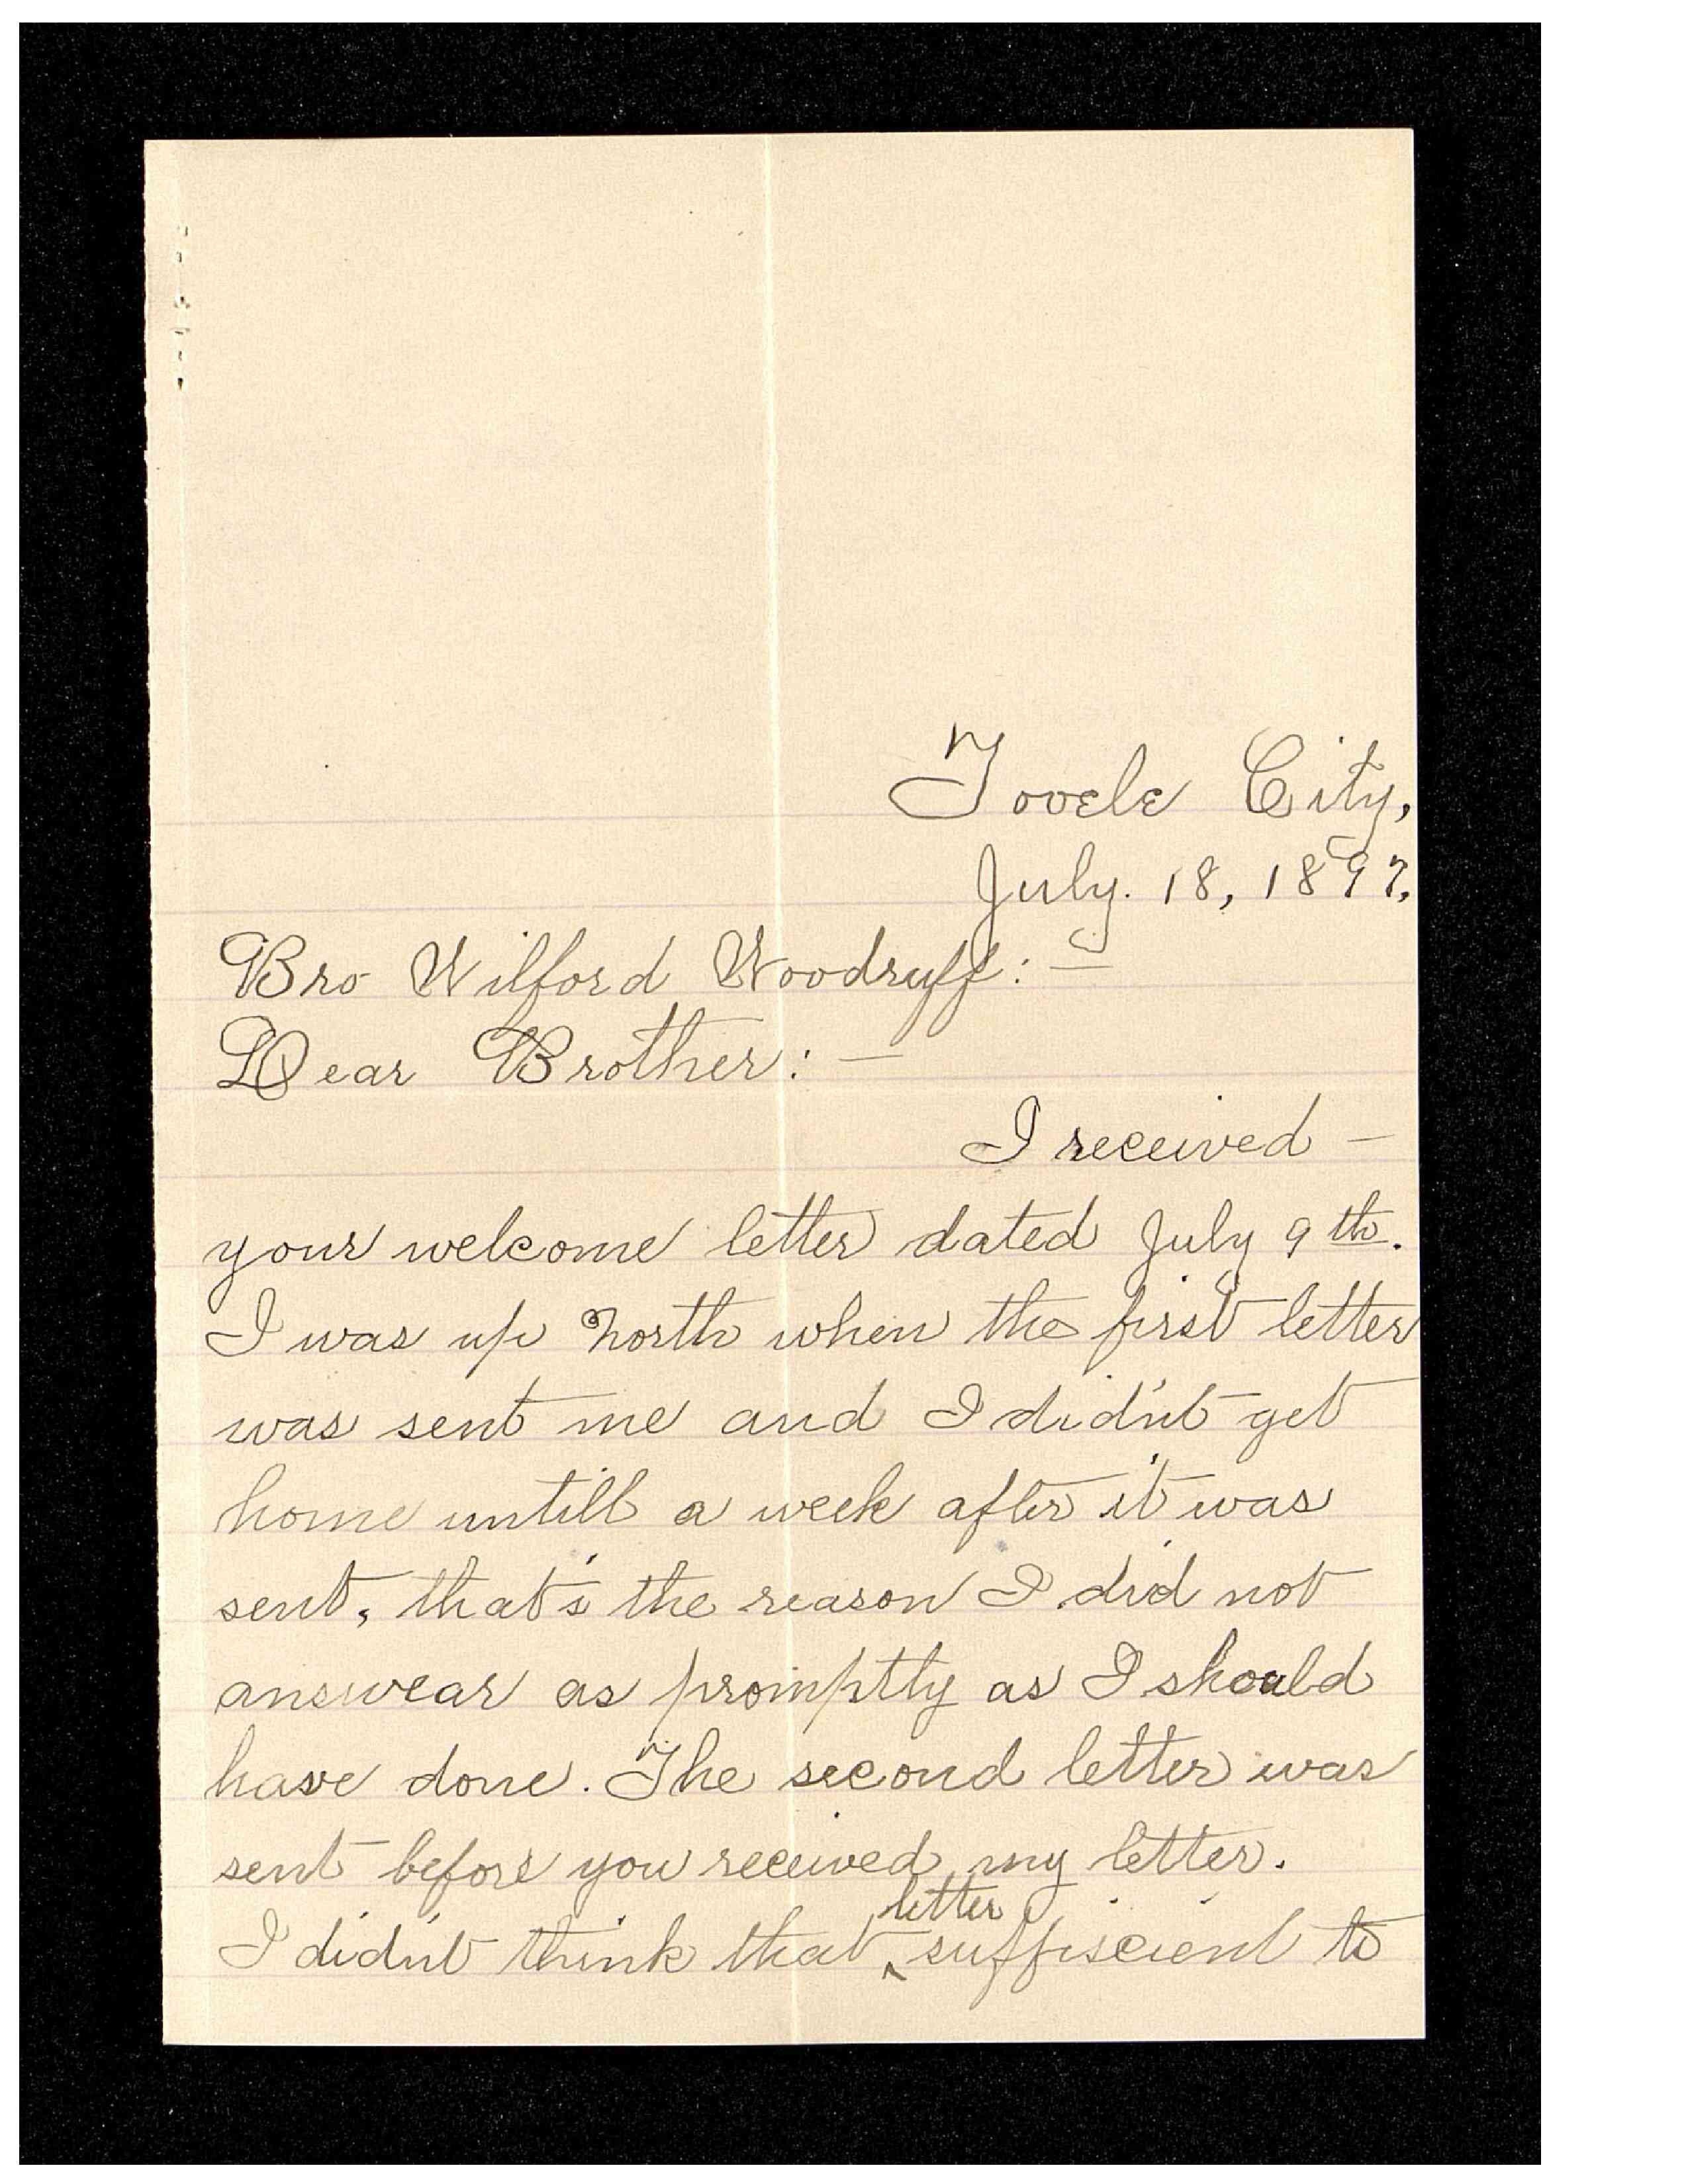 Tooele City,
July. 18, 1897.
Bro Wilford Woodruff: —
Dear Brother: —
I received —
your welcome letter dated July 9th.
I was up North when the first letter
was sent me and I didn't get
home untill a week after it was
sent, that's the reason I did not
answear as promptly as I should
have done. The second letter was
sent before you received my letter.
letter
I didn't think that ‸ suffiscient to